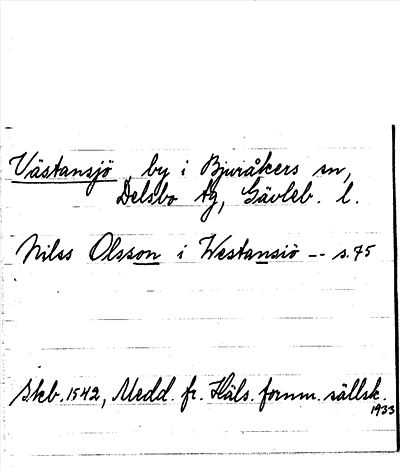 Västansjö, by i Bjuråkers sn,
Delsbo tg, Gävleb. l.
Nilss Olsson i Westansiö -- s. 75
Skb. 1542, Medd. fr. Häls. fornm. sällsk.
1933